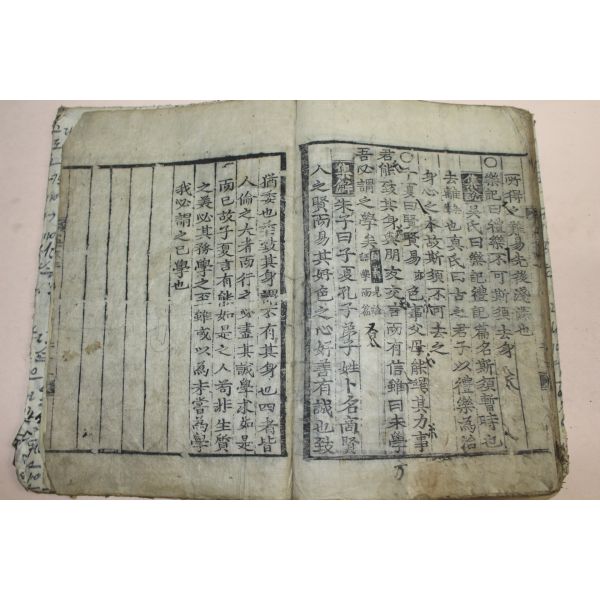 所得 難易先後淺深也
○樂記曰禮樂不可斯須去身
集解吳氏曰樂記禮記篇名斯須暫時也
去離也真氏曰古之君子以禮樂為治
身心之本故斯須不可去之
○子夏曰賢賢易色事父母能竭其力事
君能致其身與朋友交言而有信雖曰未學
吾必謂之學矣 論語學而篇
集解朱子曰子夏孔子弟子姓卜名商賢
人之賢而易其好色之心好善有誠也致
猶委也委致其身謂不有其身也四者皆
人倫之大者而行之必盡其誠學求如是
而已故子夏言有能如是之人苟非生質
之美必其務學之至雖或以為未嘗為學
我必謂之已學也